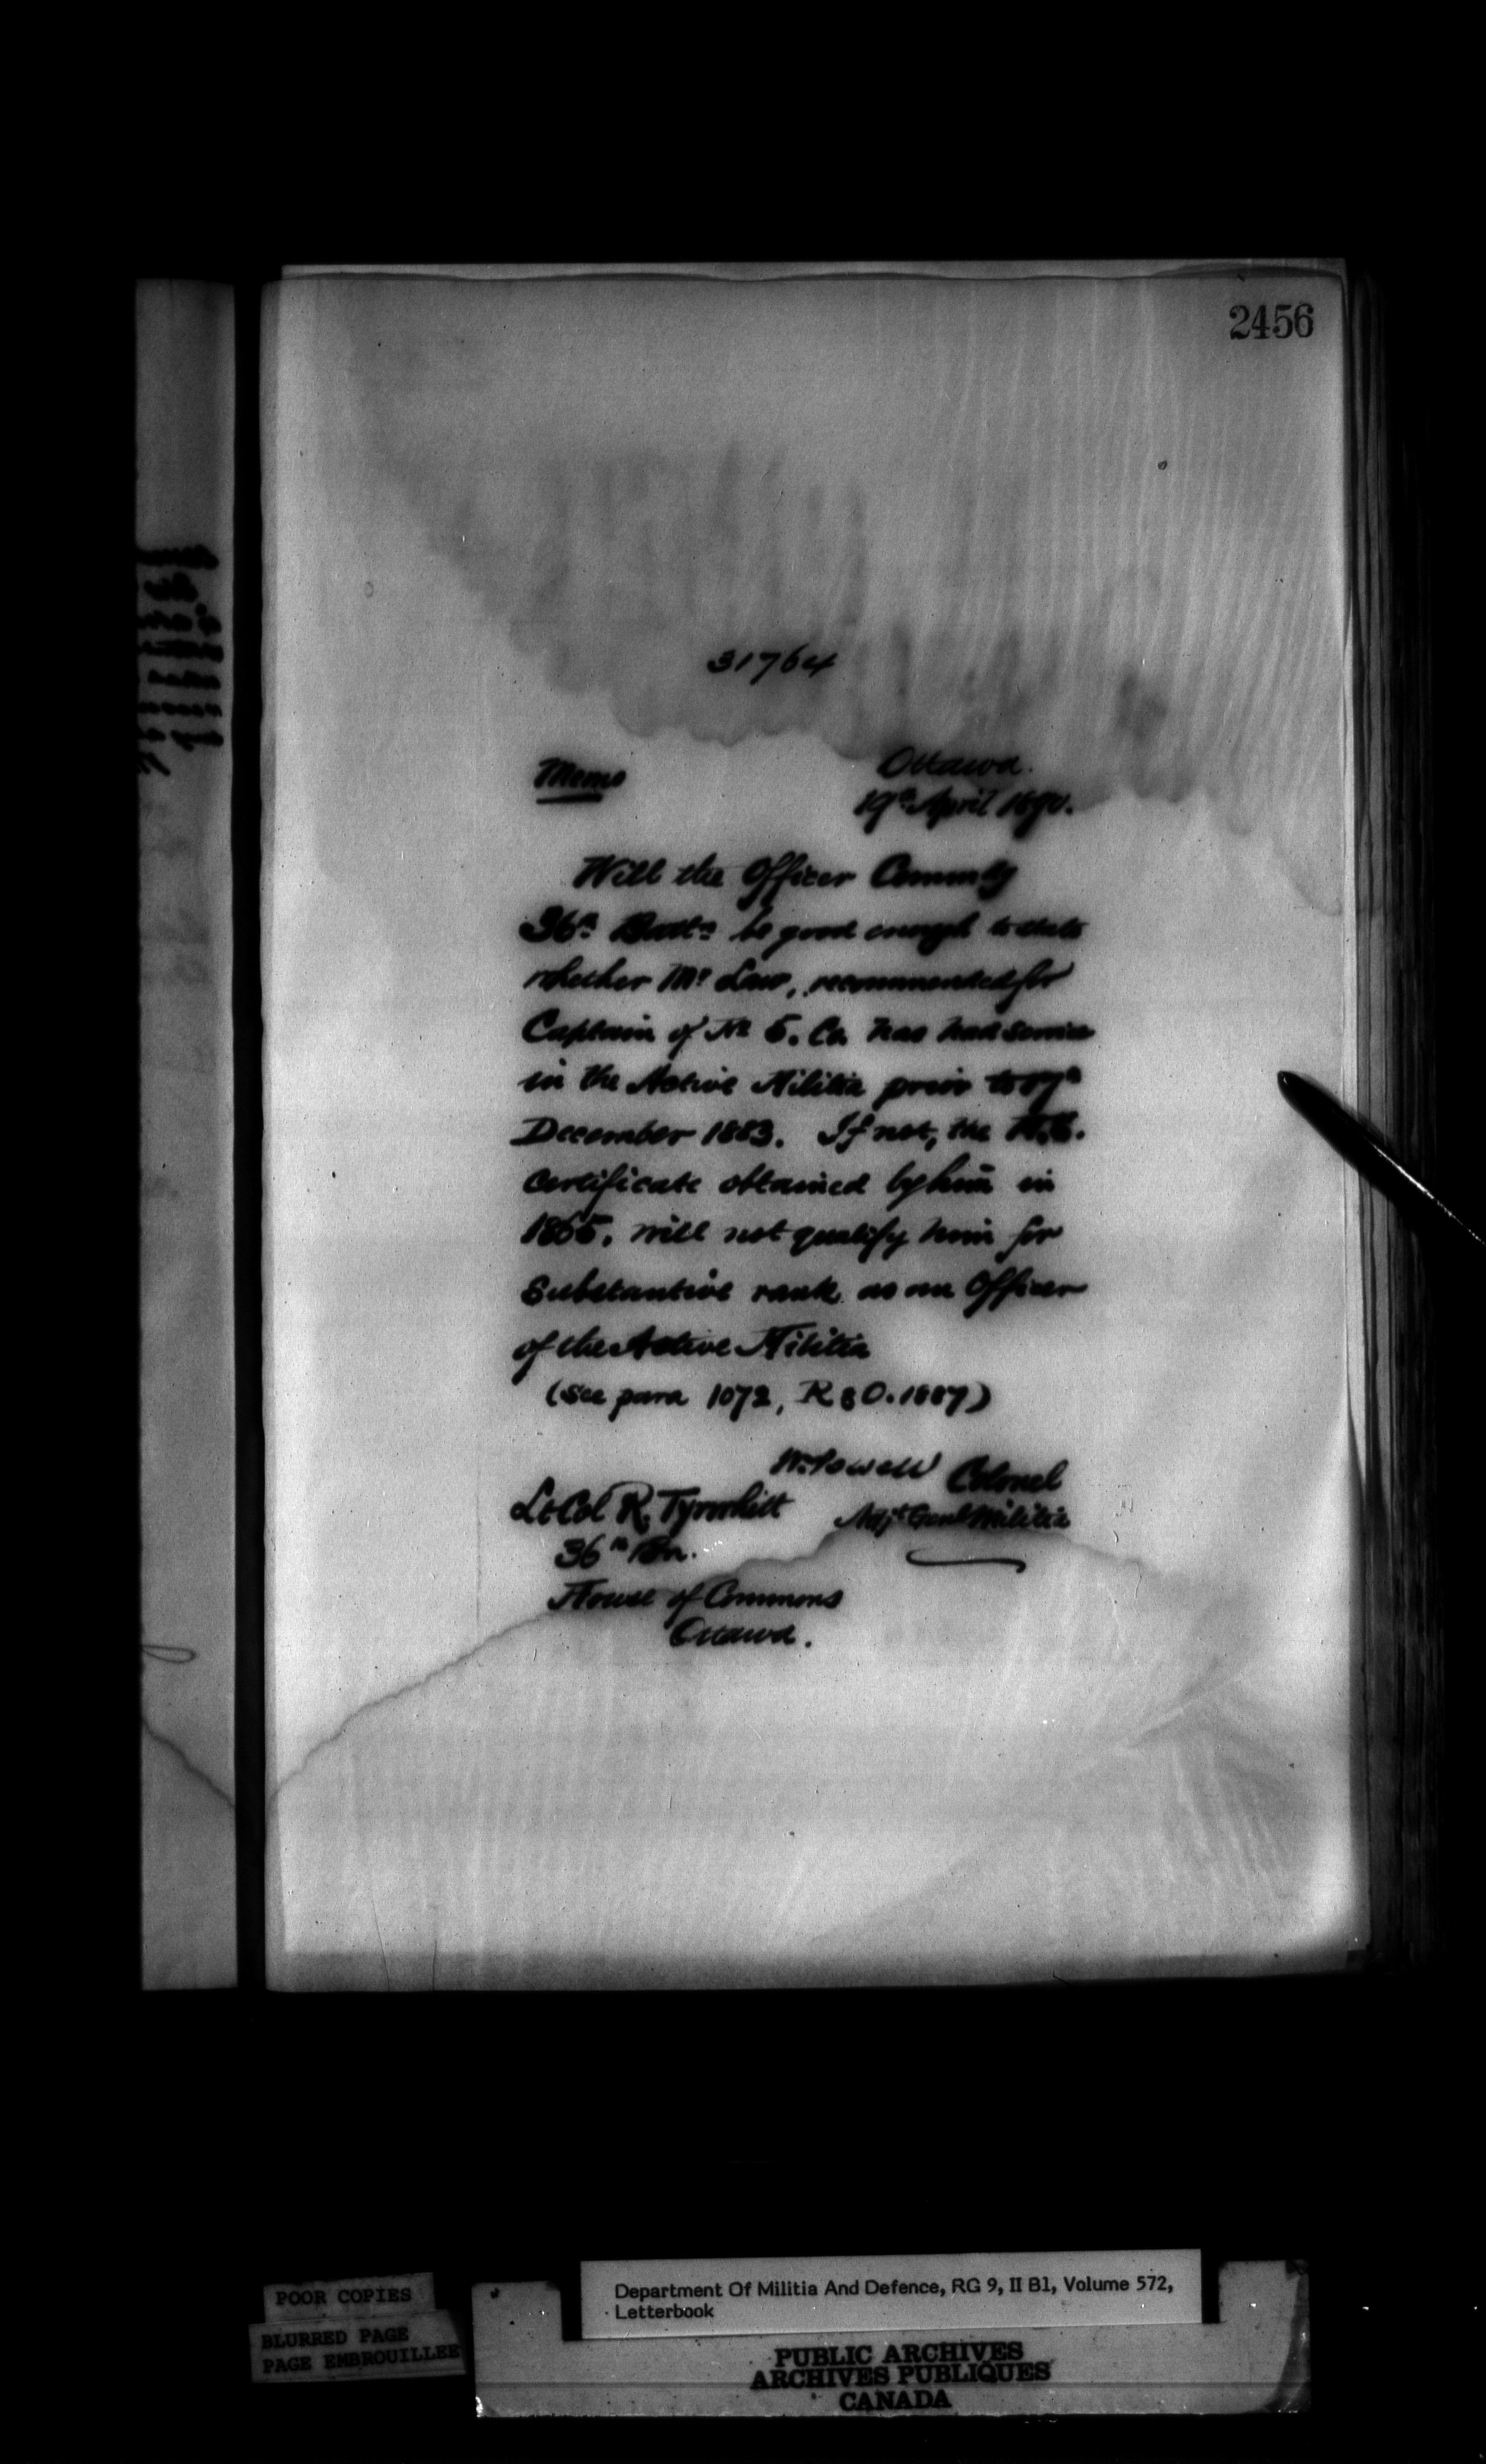 2456
31764
Memo
Ottawa.
19th April 1890.
Will the Officer Commdg
36th Battn be good enough to state
whether Mr Law, recommended for
Captain of No 5. Co. has had service
in the Active Militia prior to
December 1883. If not, the
Certificate obtained by him in
1865, will not qualify him for
Substantive rank as an Officer
of the Active Militia
(See para 1072, R & O. 1887)
W. Powell Colonel
Adjt Genl Militia
Lt Col R. Tyrwhitt
36th Bn.
House of Commons
Ottawa.
POOR COPIES
BLURRED PAGE
PAGE EMBROUILLEE
Department Of Militia And Defence, RG 9, II B1, Volume 572,
Letterbook
PUBLIC ARCHIVES
ARCHIVES PUBLIQUES
CANADA